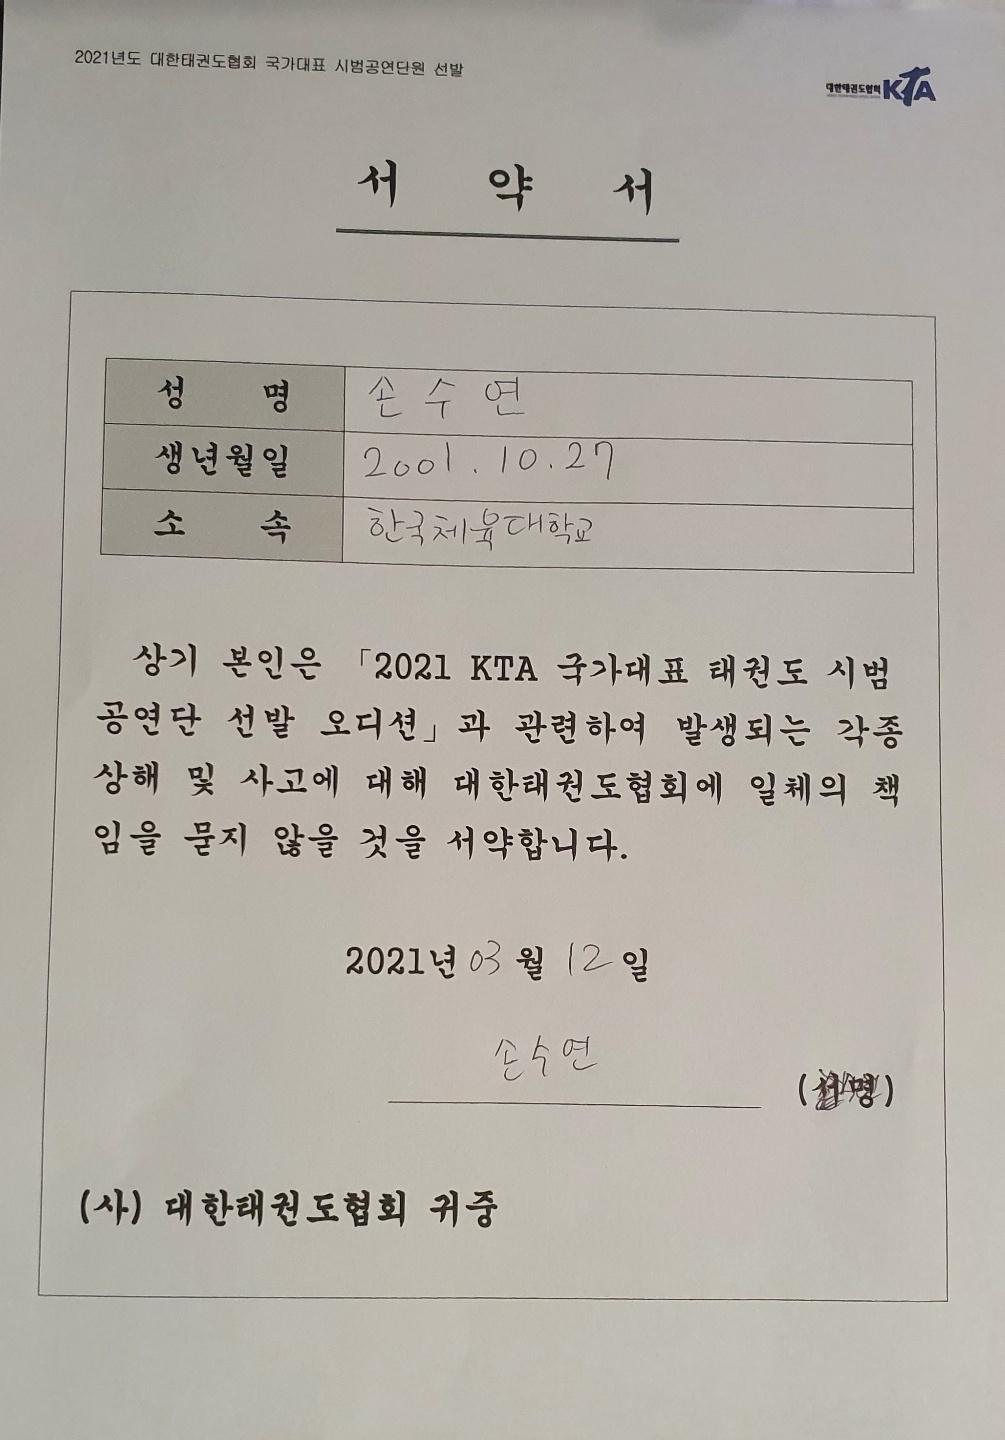 2021년도 대한태권도협회 국가대표 시범공연단원 선발
대한태권도협회 KTA
서 약 서
성 명 손수연
생년월일 2001.10.27
소 속 한국체육대학교
상기 본인은 「2021 KTA 국가대표 태권도 시범
공연단 선발 오디션」과 관련하여 발생되는 각종
상해 및 사고에 대해 대한태권도협회에 일체의 책
임을 묻지 않을 것을 서약합니다.
2021년 03월 12일
손수연
(서명)
(사) 대한태권도협회 귀중